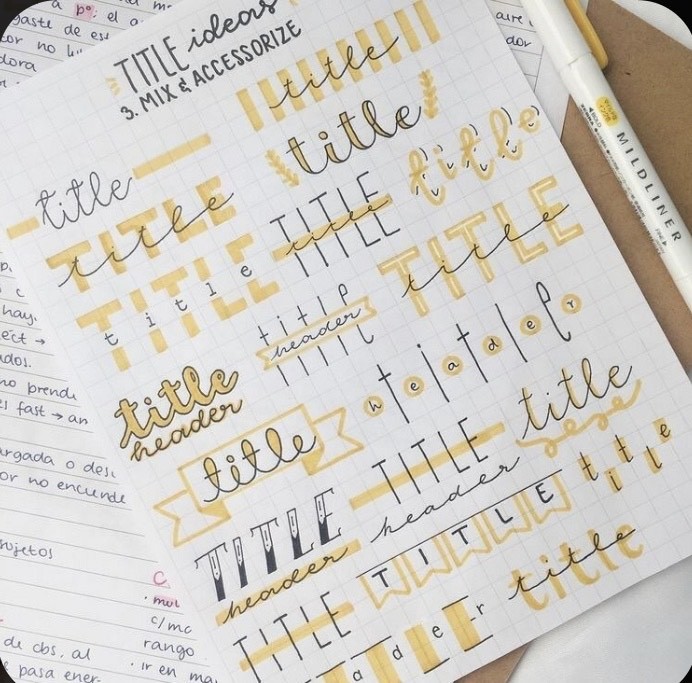 TITLE ideas
3. MIX & ACCESSORIZE
title
title
title
title
TITLE
title
TITLE
title
TITLE
title
TITLE
title
title
header
title
header
header
title
title
TITLE
header
title
title
TITLE
header
TITLE
TITLE
title
a d e r
MILDLINER
a pº: el a
gaste de est
or no lu
dora
aire
dor
hay.
ect →
ados.
no prend
s fast → an
argada o des
or no encuende
sujetos
C
c/mc
rango
de cbs. al
· ir en ma
pasa ener